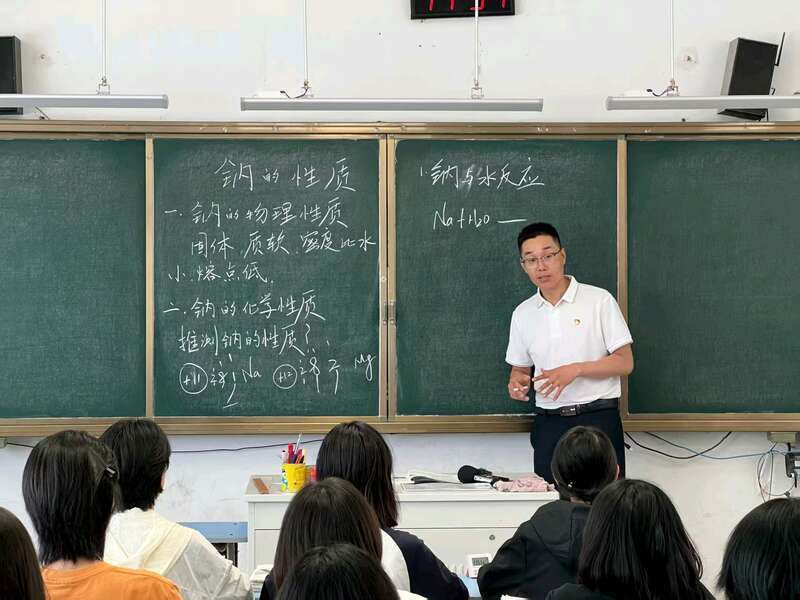 钠的性质
一.钠的物理性质
固体.质软.密度比水
小.熔点低.
二.钠的化学性质
推测钠的性质?
+11 2 8 1 Na +12 2 8 2 Mg
1.钠与水反应
Na+H₂O —